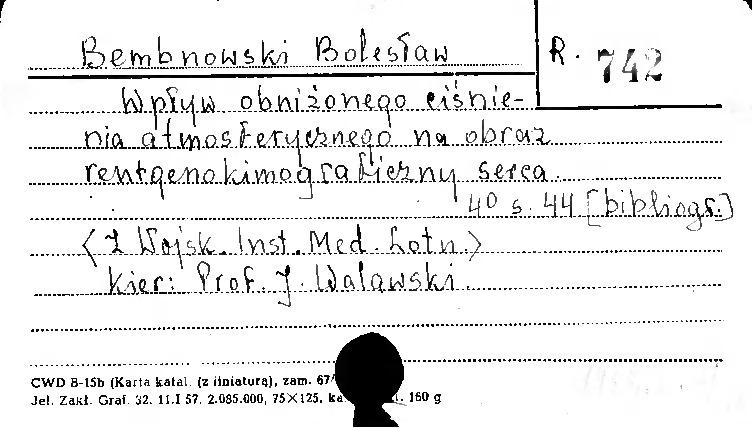 Bembnowski Bolesław
R. 742
Wpływ obniżonego ciśnie-
nia atmosferycznego na obraz
rentgenokimograficzny serca.
4° s. 44 [bibliogr.]
(Z Wojsk. Inst. Med. Lotn.)
kier: Prof. J. Walawski.
CWD B-15b (Karta katal. (z liniaturą), zam. 67
Jel. Zakł. Graf. 32. 11.I 57. 2.085.000, 75×125, ka 160 g